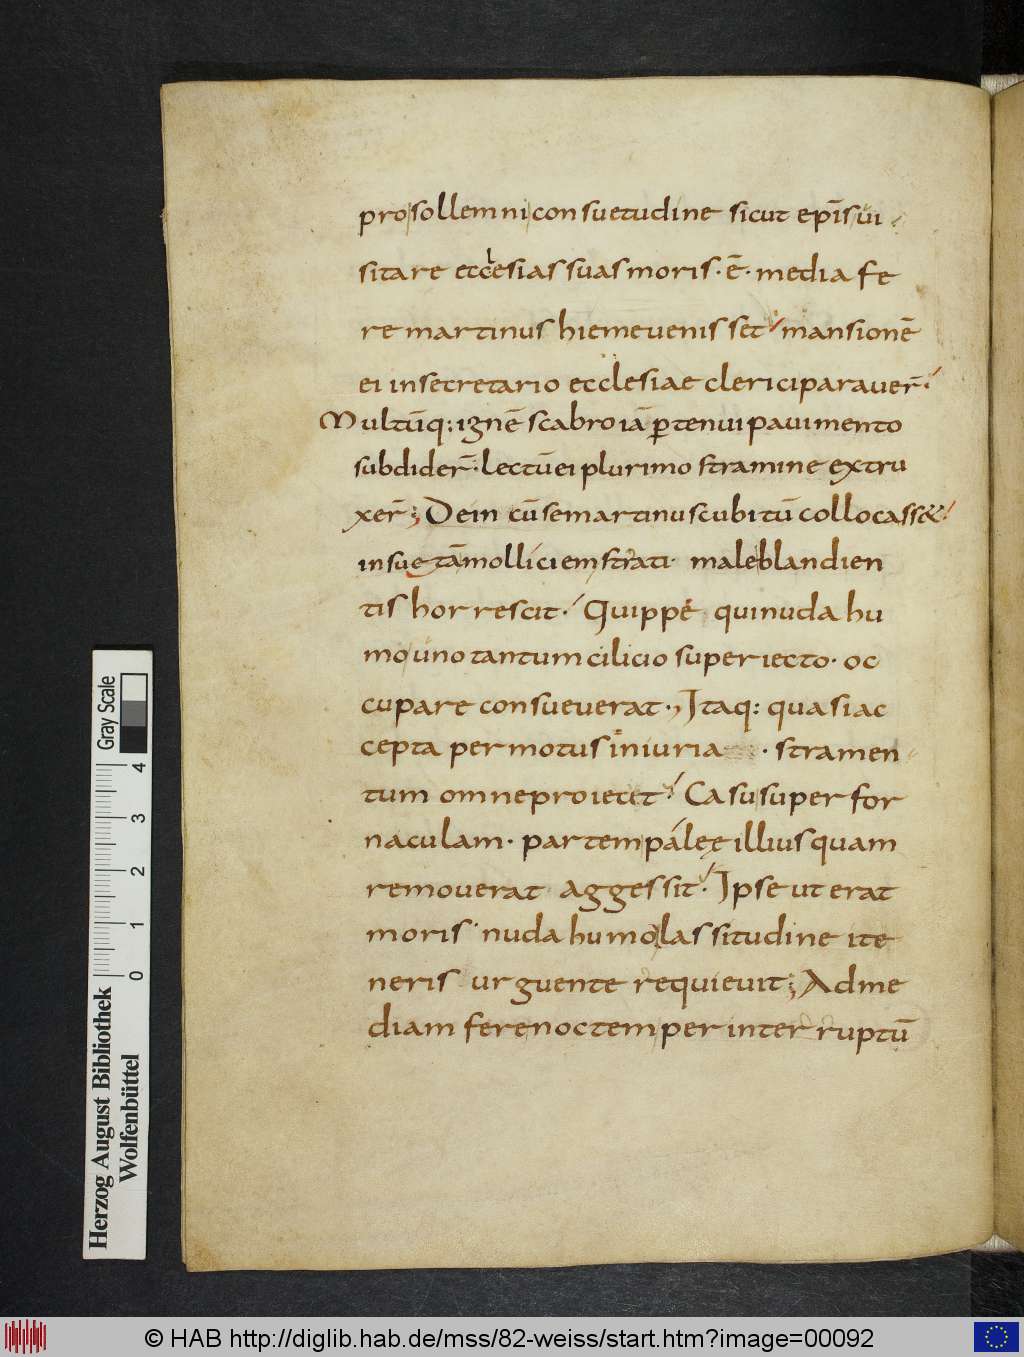 pro sollemni consuetudine sicut ep̄is ui
sitare ecclesias suas moris · ē · media fe
re martinus hieme uenisset mansionē
ei in secretario ecclesiae clerici parauer̄ ·
Multūq: ignē scabro iā ꝑtenui pauimento
subdider̄ · lectū ei plurimo stramine extru
xer̄; Dein cū se martinus cubitū collocass&
insuetā molliciem strati · male blandien
tis horrescit · Quippe qui nuda hu
mo uno tantum cilicio superiecto · oc
cupare consueuerat ·, Itaq: quasi ac
cepta permotus iniuria · stramen
tum omne proiecit · Casu super for
naculam · partem paleę illius quam
remouerat aggessit · Ipse ut erat
moris nuda humo lassitudine ite
neris urguente requieuit; Ad me
diam fere noctem per interruptū
Gray Scale
0 1 2 3 4
Herzog August Bibliothek
Wolfenbüttel
© HAB http://diglib.hab.de/mss/82-weiss/start.htm?image=00092